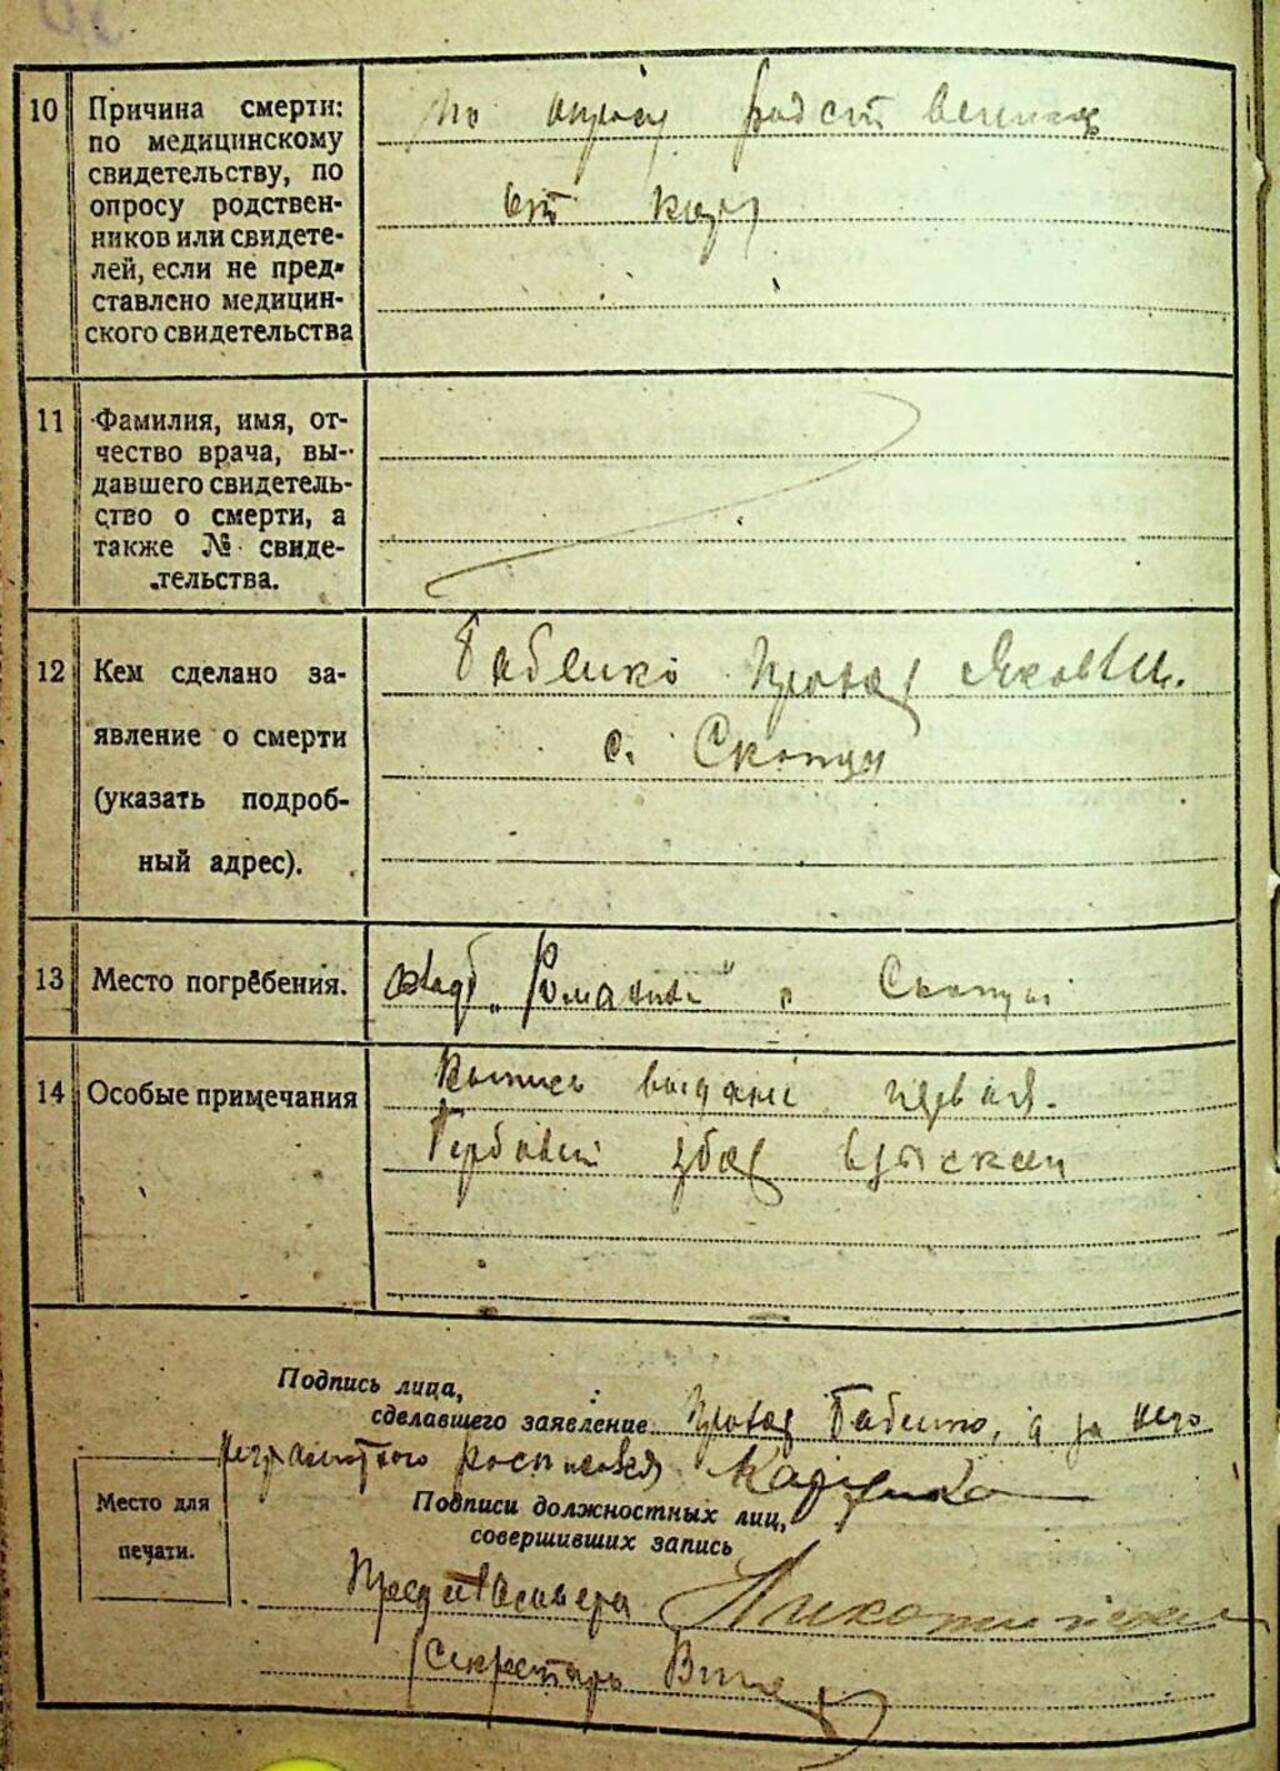 10 Причина смерти:
по медицинскому
свидетельству, по
опросу родствен-
ников или свидете-
лей, если не пред-
ставлено медицин-
ского свидетельства
по опросу родственник
от кори
11 Фамилия, имя, от-
чество врача, вы-
давшего свидетель-
ство о смерти, а
также № свиде-
тельства.
12 Кем сделано за-
явление о смерти
(указать подроб-
ный адрес).
Бабенко Яковл.
с. Скопцы
13 Место погребения.
клад „ " Скопцы
14 Особые примечания
Выпись выдана первая.
Гербовый збор взыскан
Подпись лица,
сделавшего заявление Бабенко, а за него
неграмотного росписался
Место для
печати.
Подписи должностных лиц,
совершивших запись
Секретарь